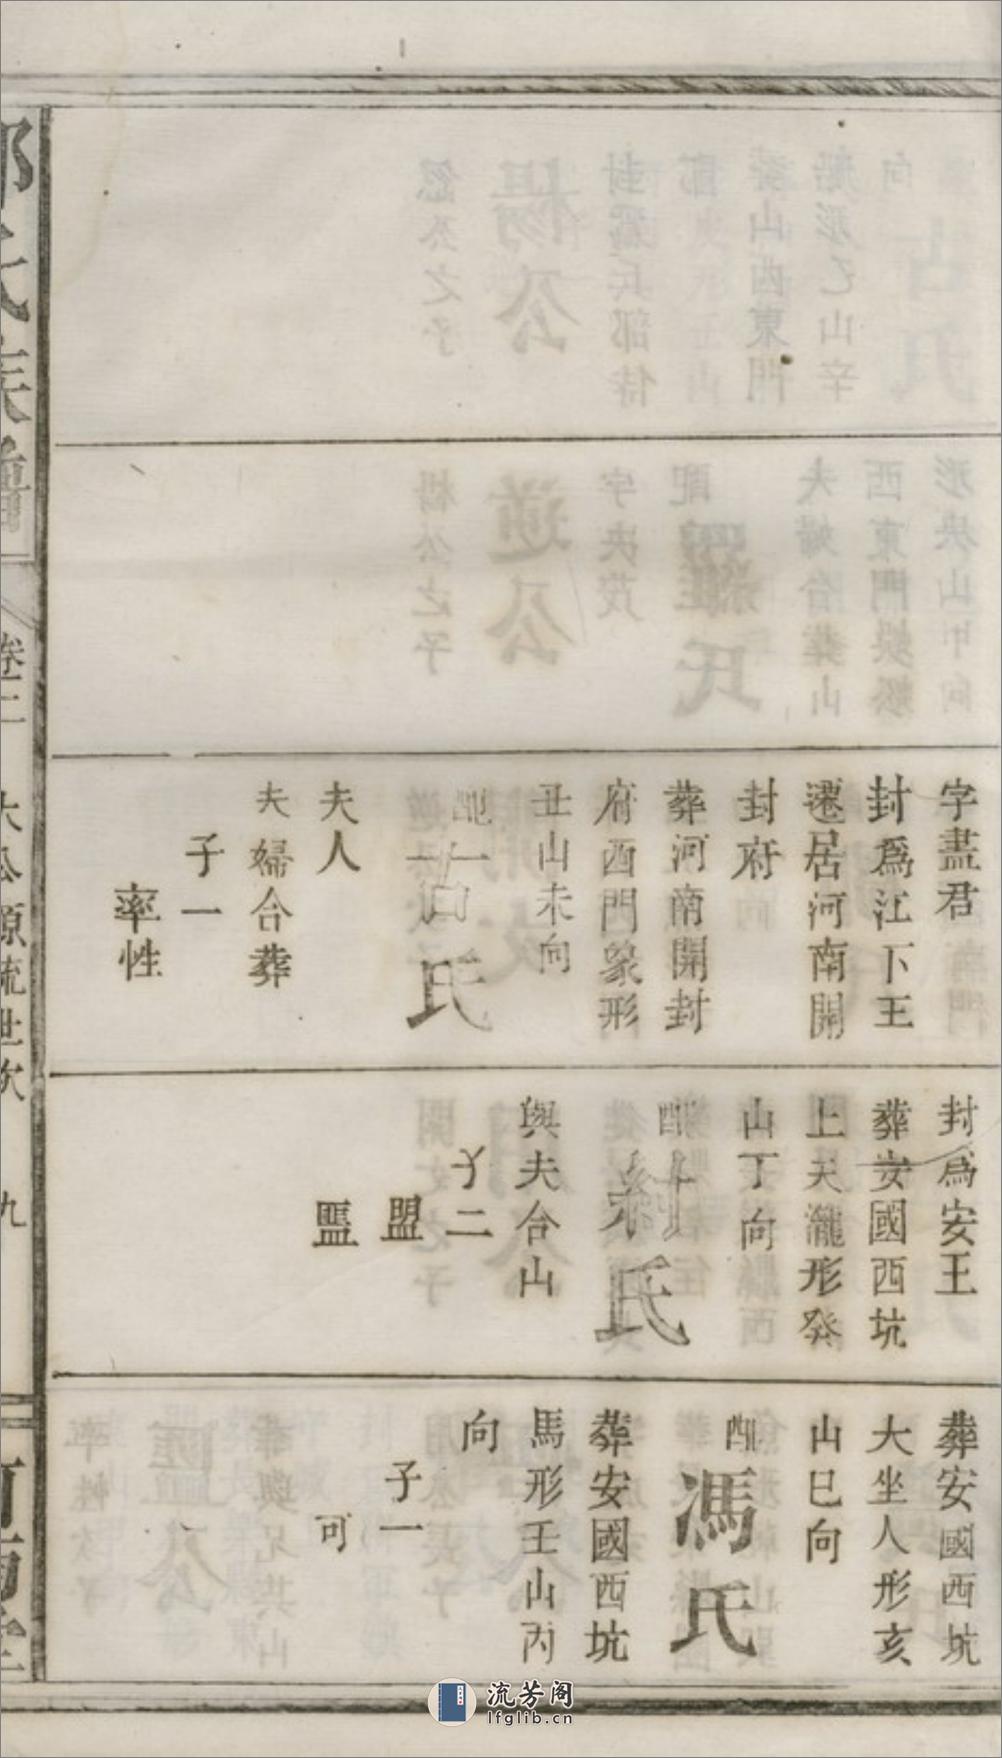 字盡君
封爲江下王
遷居河南開
封府
葬河南開封
府西門象形
丑山未向
配一口氏
夫人
夫婦合葬
子一
率性
封爲安王
葬安國西坑
上天瀧形癸
山丁向
配
氏
與夫合山
子二
盟
葬安國西坑
大坐人形亥
山巳向
配馮氏
葬安國西坑
馬形壬山丙
向
子一
可
氏族譜
卷二
太公源流世次
九
河南堂
流芳阁
lfglib.cn